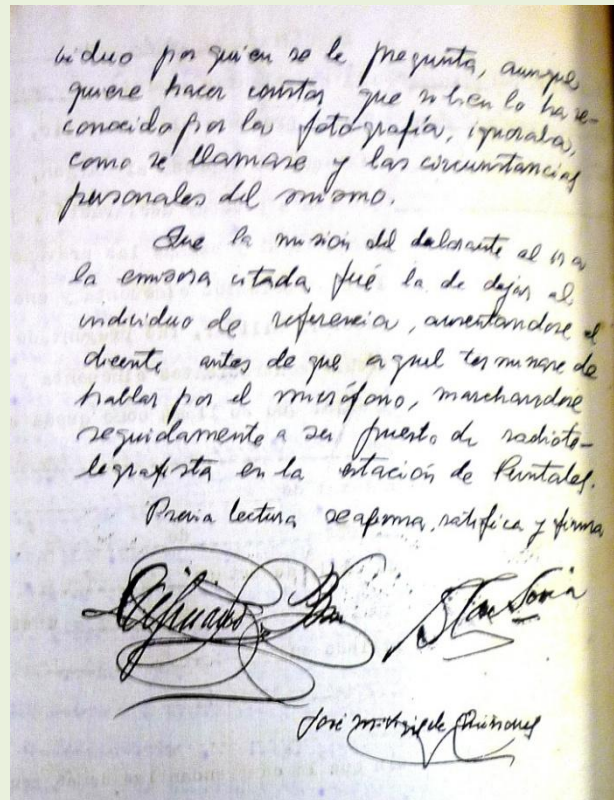 viduo por quien se le pregunta, aunque
quiere hacer constar que si bien lo ha re-
conocido por la fotografía, ignoraba,
como se llamase y las circunstancias
personales del mismo.
Que la misión del declarante al ir a
la emisora citada fué la de dejar al
individuo de referencia, ausentandose el
dicente antes de que aquel terminase de
hablar por el micrófono, marchandose
seguidamente a su puesto de radiote-
legrafista en la estación de Puntales.
Previa lectura se afirma, ratifica y firma
José Mª Vigil de Quiñones